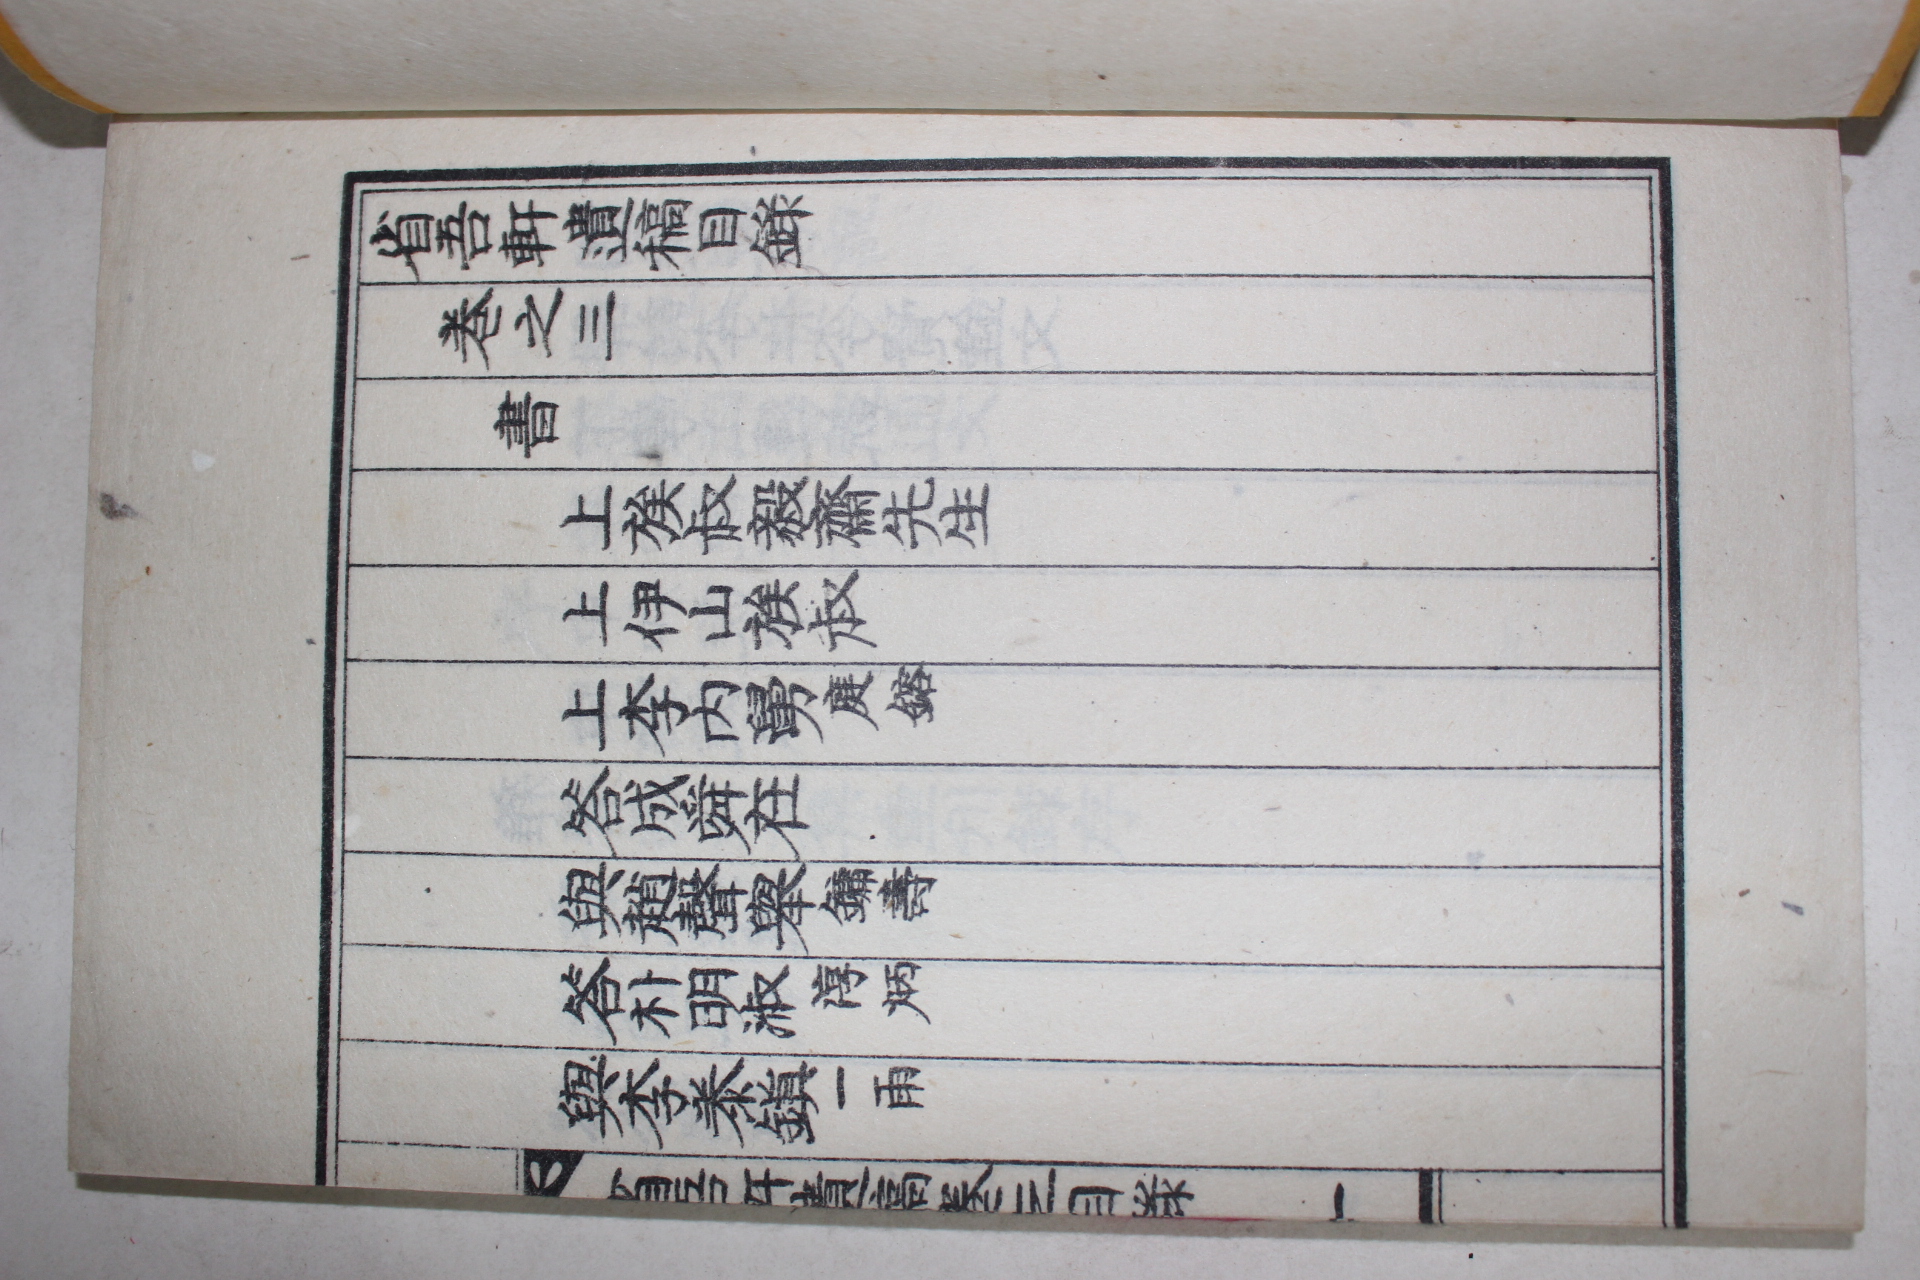 省吾軒遺稿目錄
卷之三
書
上族叔毅齋先生
上伊山族叔
上李內舅庭鎔
答成舜在
與趙聲舉鏞壽
答朴明淑淳炳
與李泰鎭一雨
省吾軒遺稿卷三目錄
一